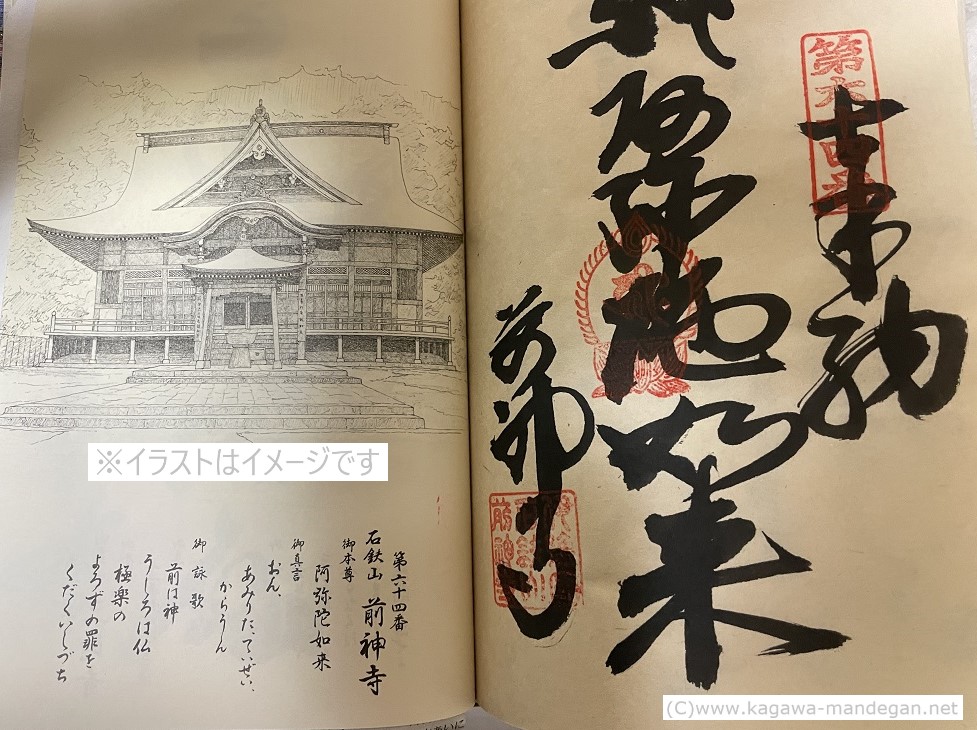 第六十四番
奉納
阿弥陀如来
前神寺
※イラストはイメージです
第六十四番
石鈇山 前神寺
御本尊
阿弥陀如来
御真言
おん、
あみりた、ていぜい、
からうん
御詠歌
前は神
うしろは仏
極楽の
よろずの罪を
くだくいしづち
(C)www.kagawa-mandegan.net